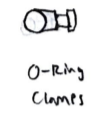 O-Ring
Clamps